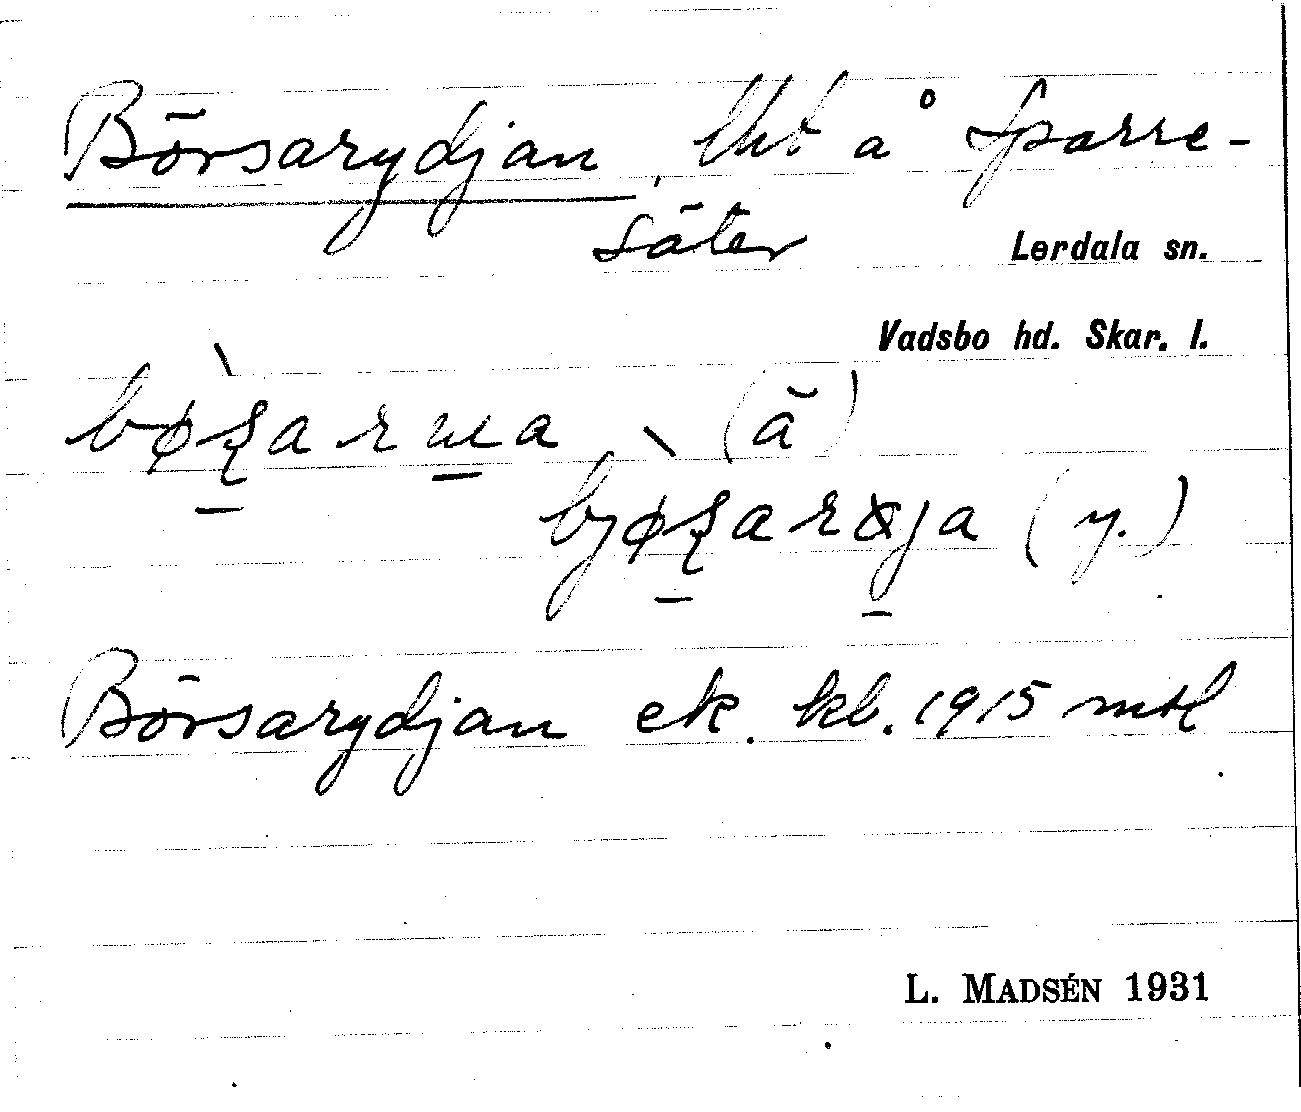 Börsarydjan, lht å Sparre-
säter
Lerdala sn.
Vadsbo hd. Skar. l.
(ä)
(y.)
Börsarydjan ek. kb. 1915 mtl
L. MADSÉN 1931